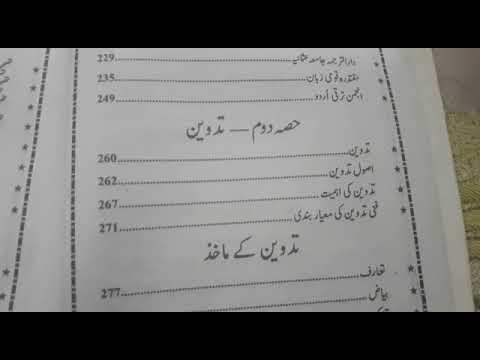 دارالترجمہ جامعہ عثمانیہ 229
مقتدرہ قومی زبان 235
انجمن ترقی اُردو 249
حصہ دوم — تدوین
تدوین 260
اصول تدوین 262
تدوین کی اہمیت 267
فنی تدوین کی معیار بندی 271
تدوین کے ماخذ
تعارف 277
بیاض